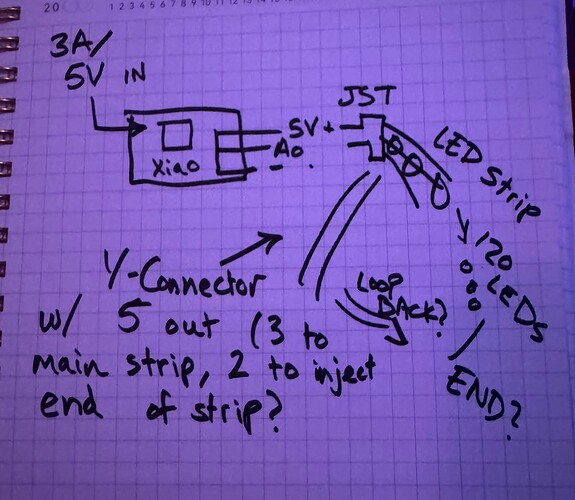 20 1 2 3 4 5 6 7 8 9 10 11 12 13 14 15
3A/
5V IN
JST
5V +
Xiao
A0
-
LED Strip
120
LEDs
Y-Connector
w/ 5 out (3 to
main strip, 2 to inject
end of strip?
LOOP
BACK?
END?